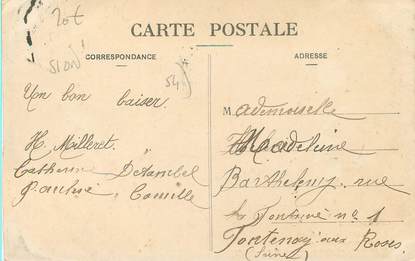 20€
SION
54
CARTE POSTALE
CORRESPONDANCE
ADRESSE
Un bon baiser.
H. Milleret.
Catherine Détambel
Camille
Mademoiselle
Madeleine
Barthélemy, rue
Fontaine n° 1
Fontenay aux Roses
(Seine)